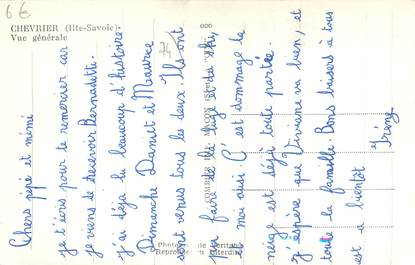 6 €
CHEVRIER (Hte-Savoie)
Vue générale
000
74
Chers pépé et mémé
je t'écris pour te remercier car
je viens de recevoir Bernadette.
j'ai déjà lu beaucoup d'histoire.
Dimanche Daniel et Maurice
sont venus tous les deux. Ils ont
pu faire de la luge et du ski,
et moi aussi C'est dommage la
neige est déjà toute partie.
J'espère que Viviane va bien, et
toute la famille. Bons baisers à tous
et à bientôt
Irène
COMBIER IMP. MÂCON
Photo véritable
Reproduction interdite